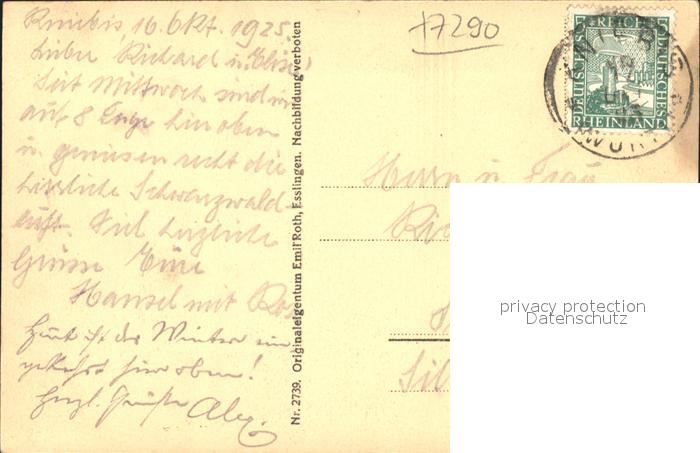 Kniebis, 16. Okt. 1925
Lieber Richard u. Elise!
Seit Mittwoch sind wir
auf 8 Tage hier oben
u. geniesen recht die
herrliche Schwarzwald-
luft. Viel herzliche
Grüsse Eure
Hansel mit Ros
Heut ist der Winter ein
gekehrt hier oben!
Herzl. Grüße Alex.
Nr. 2739. Originaleigentum Emil Roth, Esslingen. Nachbildung verboten
+7290
DEUTSCHES REICH
5 5
DEUTSCHES
RHEINLAND
WÜRTT
Herrn u. Frau
Ric
Sil
privacy protection
Datenschutz